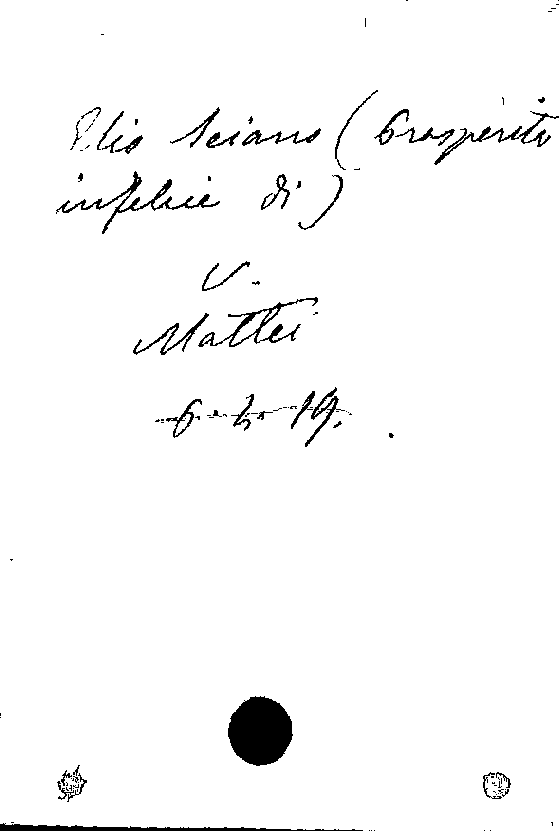 Elio Seiano (Prosperità
infelice di)
V.
Mattei
6. h. 19.